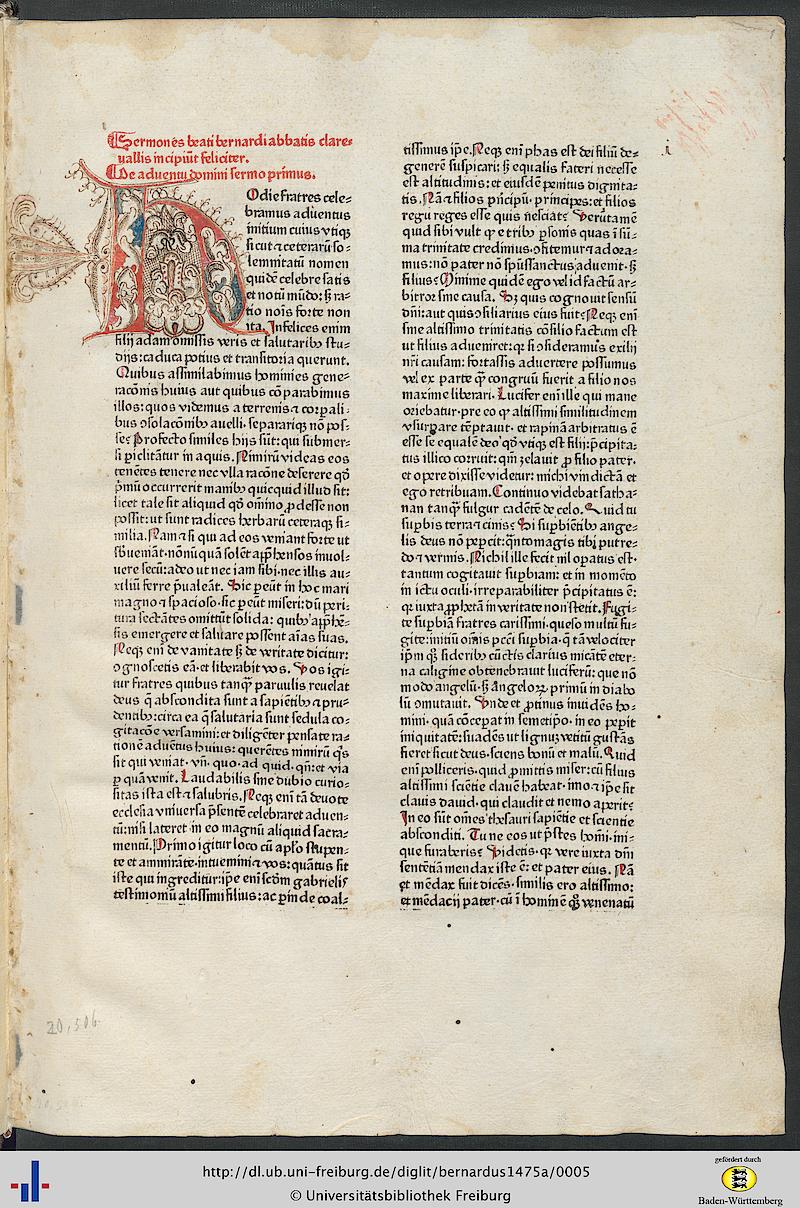 Sermones beati bernardi abbatis clare⸗
uallis incipiūt feliciter.
De aduentu domini sermo primus.
HOdie fratres cele⸗
bramus aduentus
initium cuius vtiqꝫ
sicut ⁊ ceterarū so⸗
lemnitatū nomen
quidē celebre satis
et notū mūdo: sꝫ ra⸗
tio nois forte non
ita. Infelices enim
filij adam omissis veris et salutaribꝰ stu⸗
dijs: caduca potius et transitoria querunt.
Quibus assimilabimus hominies gene⸗
racōnis huius aut quibus cōparabimus
illos: quos videmus a terrenis ⁊ corpali⸗
bus ↄsolacōnibꝰ auelli. separariqꝫ nō pos⸗
se? Profecto similes hijs sūt: qui submer⸗
si piclitātur in aquis. Nimirū videas eos
tenētes tenere nec vlla racōne deserere qd̄
p̄mū occurrerit manibꝰ quicquid illud sit:
licet tale sit aliquid qd̄ oīnīo ꝓdesse non
possit: ut sunt radices herbarū ceteraqꝫ si⸗
milia. Nam ⁊ si qui ad eos veniant forte ut
sb̄ueniāt. nōnūquā solēt app̄hensos inuol⸗
uere secū: adeo ut nec iam sibi. nec illis au⸗
xiliū ferre p̄ualeāt. Sic peūt in hoc mari
magno ⁊ spacioso. sic peūt miseri: dū peri⸗
tura sectātes omittūt solida: quibꝰ app̄hē⸗
sis emergere et saluare possent aīas suas.
Neqꝫ enī de vanitate sꝫ de veritate dicitur:
ↄgnoscetis eā. et liberabit vos. Vos igi⸗
tur fratres quibus tanqꝫ paruulis reuelat
deus q̄ abscondita sunt a sapiētibꝰ ⁊ pru⸗
dentibꝰ: circa ea q̄ salutaria sunt sedula co⸗
gitacōe versamini: et diligēter pensate ra⸗
tionē aduētus huius: querētes nimirū q̄s
sit qui veniat. vn̄. quo. ad quid. qn̄: et via
p quā venit. Laudabilis sine dubio curio⸗
sitas ista est ⁊ salubris. Neqꝫ enī tā deuote
ecclesia vniuersa p̄sentē celebraret aduen⸗
tū: nisi lateret in eo magnū aliquid sacra⸗
mentū. Primo igitur loco cū aplo stupen⸗
te et ammirāte. intuemini ⁊ vos: quātus sit
iste qui ingreditur: ipe enī scdm gabrielis
testimoniū altissimi filius: ac pinde coal⸗
tissimus ipe. Neqꝫ enī phas est dei filiū de⸗
generē suspicari: sꝫ equalis fateri necesse
est altitudinis: et eiusdē penitus dignita⸗
tis. Nā ⁊ filios p̄ncipū. principes: et filios
regū reges esse quis nesciat? Verūtamē
quid sibi vult ꝙ e tribꝰ psonis quas ī sū⸗
ma trinitate credimus. ↄfitemur ⁊ adora⸗
mus: nō pater nō spūssanctus aduenit. sꝫ
filius? Minime quidē ego vel id factū ar⸗
bitror sine causa. Sꝫ quis cognouit sensū
dn̄i: aut quis ↄsiliarius eius fuit? Neqꝫ enī
sine altissimo trinitatis cōsilio factum est
ut filius adueniret: ꝙ si ↄsideramus exilij
nr̄i causam: fortassis aduertere possumus
vel ex parte q̄ congruū fuerit a filio nos
maxime liberari. Lucifer enī ille qui mane
oriebatur. pre eo ꝙ altissimi similitudinem
vsurpare tēptauit. et rapinā arbitratus ē
esse se equalē deo. qd̄ vtiqꝫ est filij: p̄cipita⸗
tus illico corruit: qm̄ zelauit ꝓ filio pater.
et opere dixisse videtur: michi vindictā et
ego retribuam. Continuo videbat satha⸗
nan tanqꝫ fulgur cadētē de celo. Quid tu
supbis terra ⁊ cinis? Si supbiētibꝰ ange⸗
lis deus nō pepcit: q̄ntomagis tibi putre⸗
do ⁊ vermis. Nichil ille fecit nil opatus est.
tantum cogitauit supbiam: et in momēto
in ictu oculi. irreparabiliter p̄cipitatus ē:
ꝙ iuxta ꝓphetā in veritate non stetit. Fugi⸗
te supbiā fratres carissimi. queso multū fu⸗
gite: initiū oīnis pcc̄i supbia. q̄ tā velociter
ipm̄ qꝫ sideribꝰ cūctis clarius micātē eter⸗
na caligine obtenebrauit luciferū: que nō
modo angelū. sꝫ angeloꝝ primū in diabo
lū ↄmutauit. Vnde et ꝓtinus inuidēs ho⸗
mini. quā cōcepat in semetipo. in eo pepit
iniquitatē: suadēs ut lignū vetitū gustās
fieret sicut deus. sciens bonū et malū. Quid
enī polliceris. quid ꝓmittis miser: cū filius
altissimi sciētie clauē habeat. imo ⁊ ipe sit
clauis dauid. qui claudit et nemo aperit?
In eo sūt oīnes thesauri sapiētie et scientie
absconditi. Tu ne eos ut p̄stes homi. ini⸗
que furaberis? Videtis. ꝙ vere iuxta dn̄i
sentētiā mendax iste ē: et pater eius. Nā
et mēdax fuit dicēs. similis ero altissimo:
et mēdacij pater. cū ī hominē qꝫ venenatū
i
20,506
http://dl.ub.uni-freiburg.de/diglit/bernardus1475a/0005
© Universitätsbibliothek Freiburg
gefördert durch
Baden-Württemberg